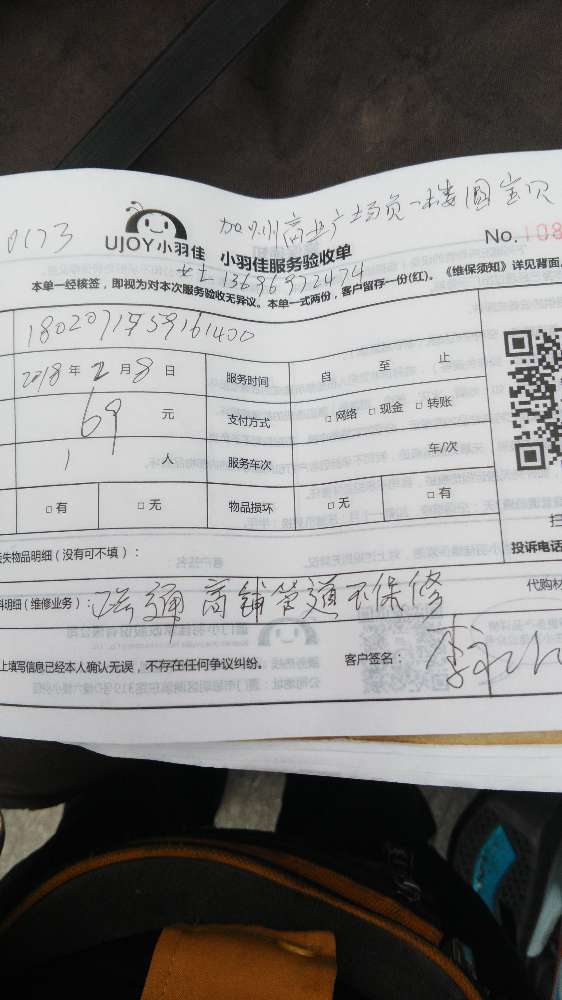 加州商业广场负一楼围宝贝
0173
UJOY小羽佳 小羽佳服务验收单 No. 108
女士13696972474
本单一经核签，即视为对本次服务验收无异议。本单一式两份，客户留存一份(红)。《维保须知》详见背面。
2018年2月8日 服务时间 自 至 止
69 元 支付方式 □网络 □现金 □转账
1 人 服务车次 车/次
□有 □无 物品损坏 □无 □有
失物品明细（没有可不填）： 投诉电话
料明细（维修业务）： 疏通 商铺管道不保修 代购材
上填写信息已经本人确认无误，不存在任何争议纠纷。 客户签名：